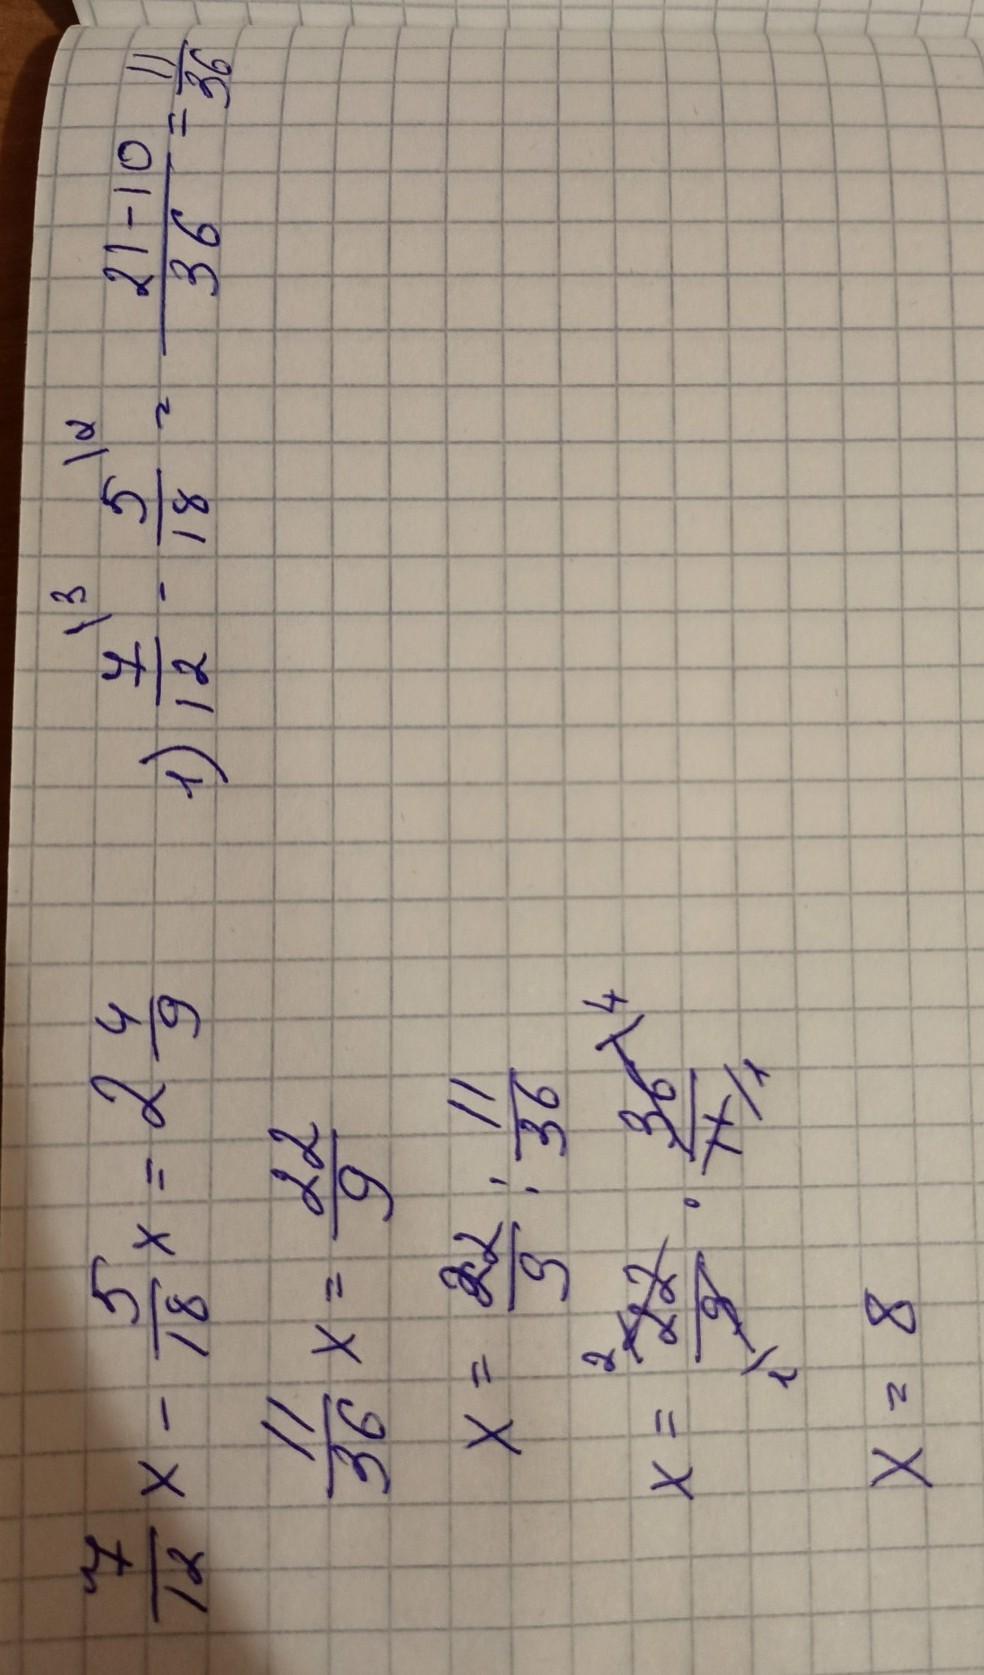 7/12 x - 5/18 x = 2 4/9
11/36 x = 22/9
x = 22/9 : 11/36
x = 22/9 · 36/11
2 1 4 1
x = 8
1) 7/12 \3 - 5/18 \2 = 21-10/36 = 11/36